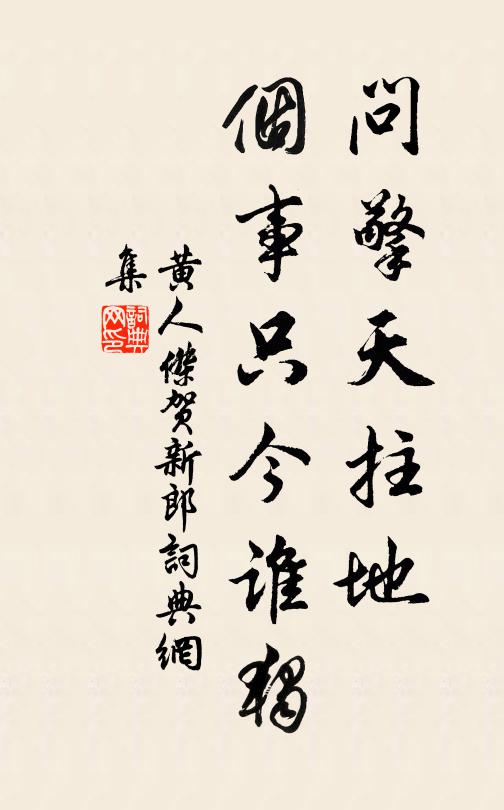 問擎天拄地
個事只今誰獨
黄人傑贺新郎詞典網
集
詞典
网印